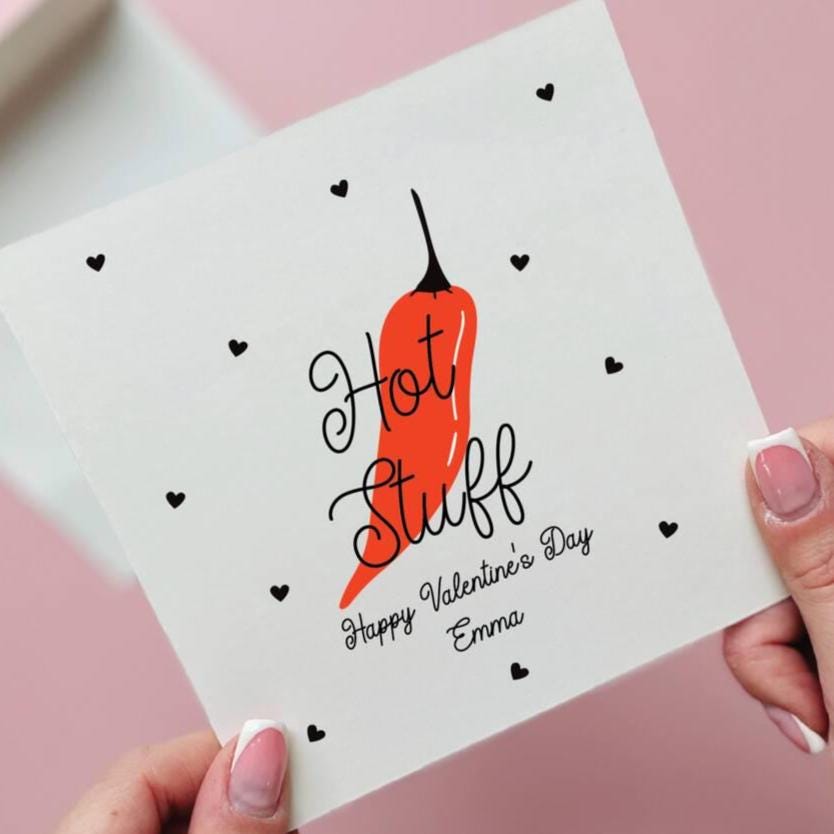 Hot
Stuff
Happy Valentine's Day
Emma